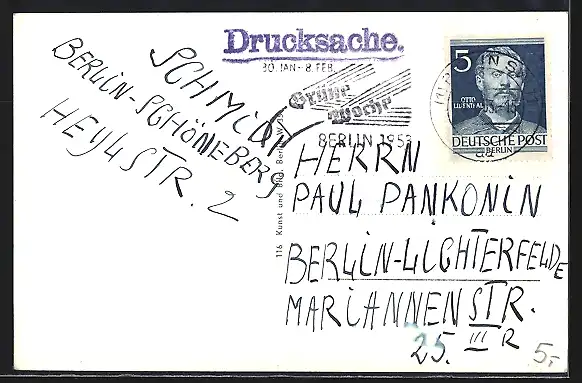 Drucksache.
SCHMIDT
BERLIN-SCHÖNEBERG
HEYLSTR. 2
30. JAN - 8. FEB.
Grüne
Woche
BERLIN 1953
5
OTTO
LILIENTHAL
DEUTSCHE POST
BERLIN
116 Kunst und Bild, Berlin W 35
HERRN
PAUL PANKONIN
BERLIN-LICHTERFELDE
MARIANNENSTR.
25. III R
5.-